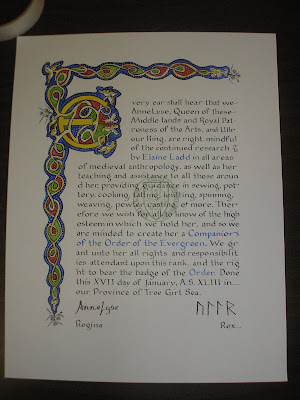 Every ear shall hear that we
AnneLyse, Queen of these
Middle lands and Royal Pat
roness of the Arts, and Ullr
our King, are right mindful
of the continued research &
by Elaine Ladd in all areas
of medieval anthropology, as well as her
teaching and assistance to all those aroun
d her, providing in sewing, pot
tery, cooking, knitting, spinning,
weaving, pewter casting, et more. Ther
efore we wish for all to know of the high
esteem in which we hold her, and so we
are minded to create her a Companion
of the Order of the Evergreen. We gr
ant unto her all rights and responsibilit
ies attendant upon this rank, and the rig
ht to bear the badge of the Order. Done
this XVII day of January, A.S. XLIII in
our Province of Tree Girt Sea.
AnneLyse ᚢᛚᛚᚱ
Regina Rex